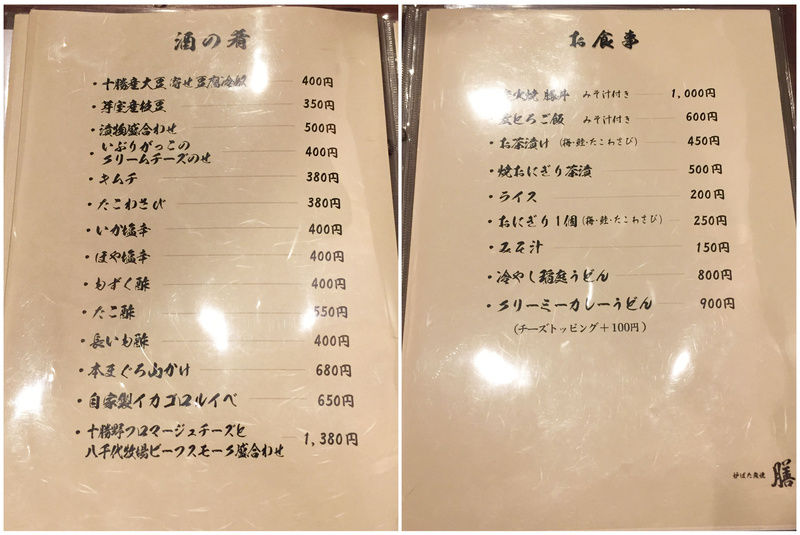 酒の肴
・十勝産大豆 寄せ豆腐冷奴 400円
・芽室産枝豆 350円
・漬物盛合わせ 500円
・いぶりがっこの
クリームチーズのせ 400円
・キムチ 380円
・たこわさび 380円
・いか塩辛 400円
・ほや塩辛 400円
・もずく酢 400円
・たこ酢 550円
・長いも酢 400円
・本まぐろ山かけ 680円
・自家製イカゴロルイベ 650円
・十勝野フロマージュチーズと
八千代牧場ビーフスモーク盛合わせ 1,380円
お食事
火焼 豚丼 みそ汁付き 1,000円
とろご飯 みそ汁付き 600円
・お茶漬け (梅・鮭・たこわさび) 450円
・焼おにぎり茶漬 500円
・ライス 200円
・おにぎり1個 (梅・鮭・たこわさび) 250円
・みそ汁 150円
・冷やし稲庭うどん 800円
・クリーミーカレーうどん 900円
(チーズトッピング+100円)
炉ばた魚焼 膳